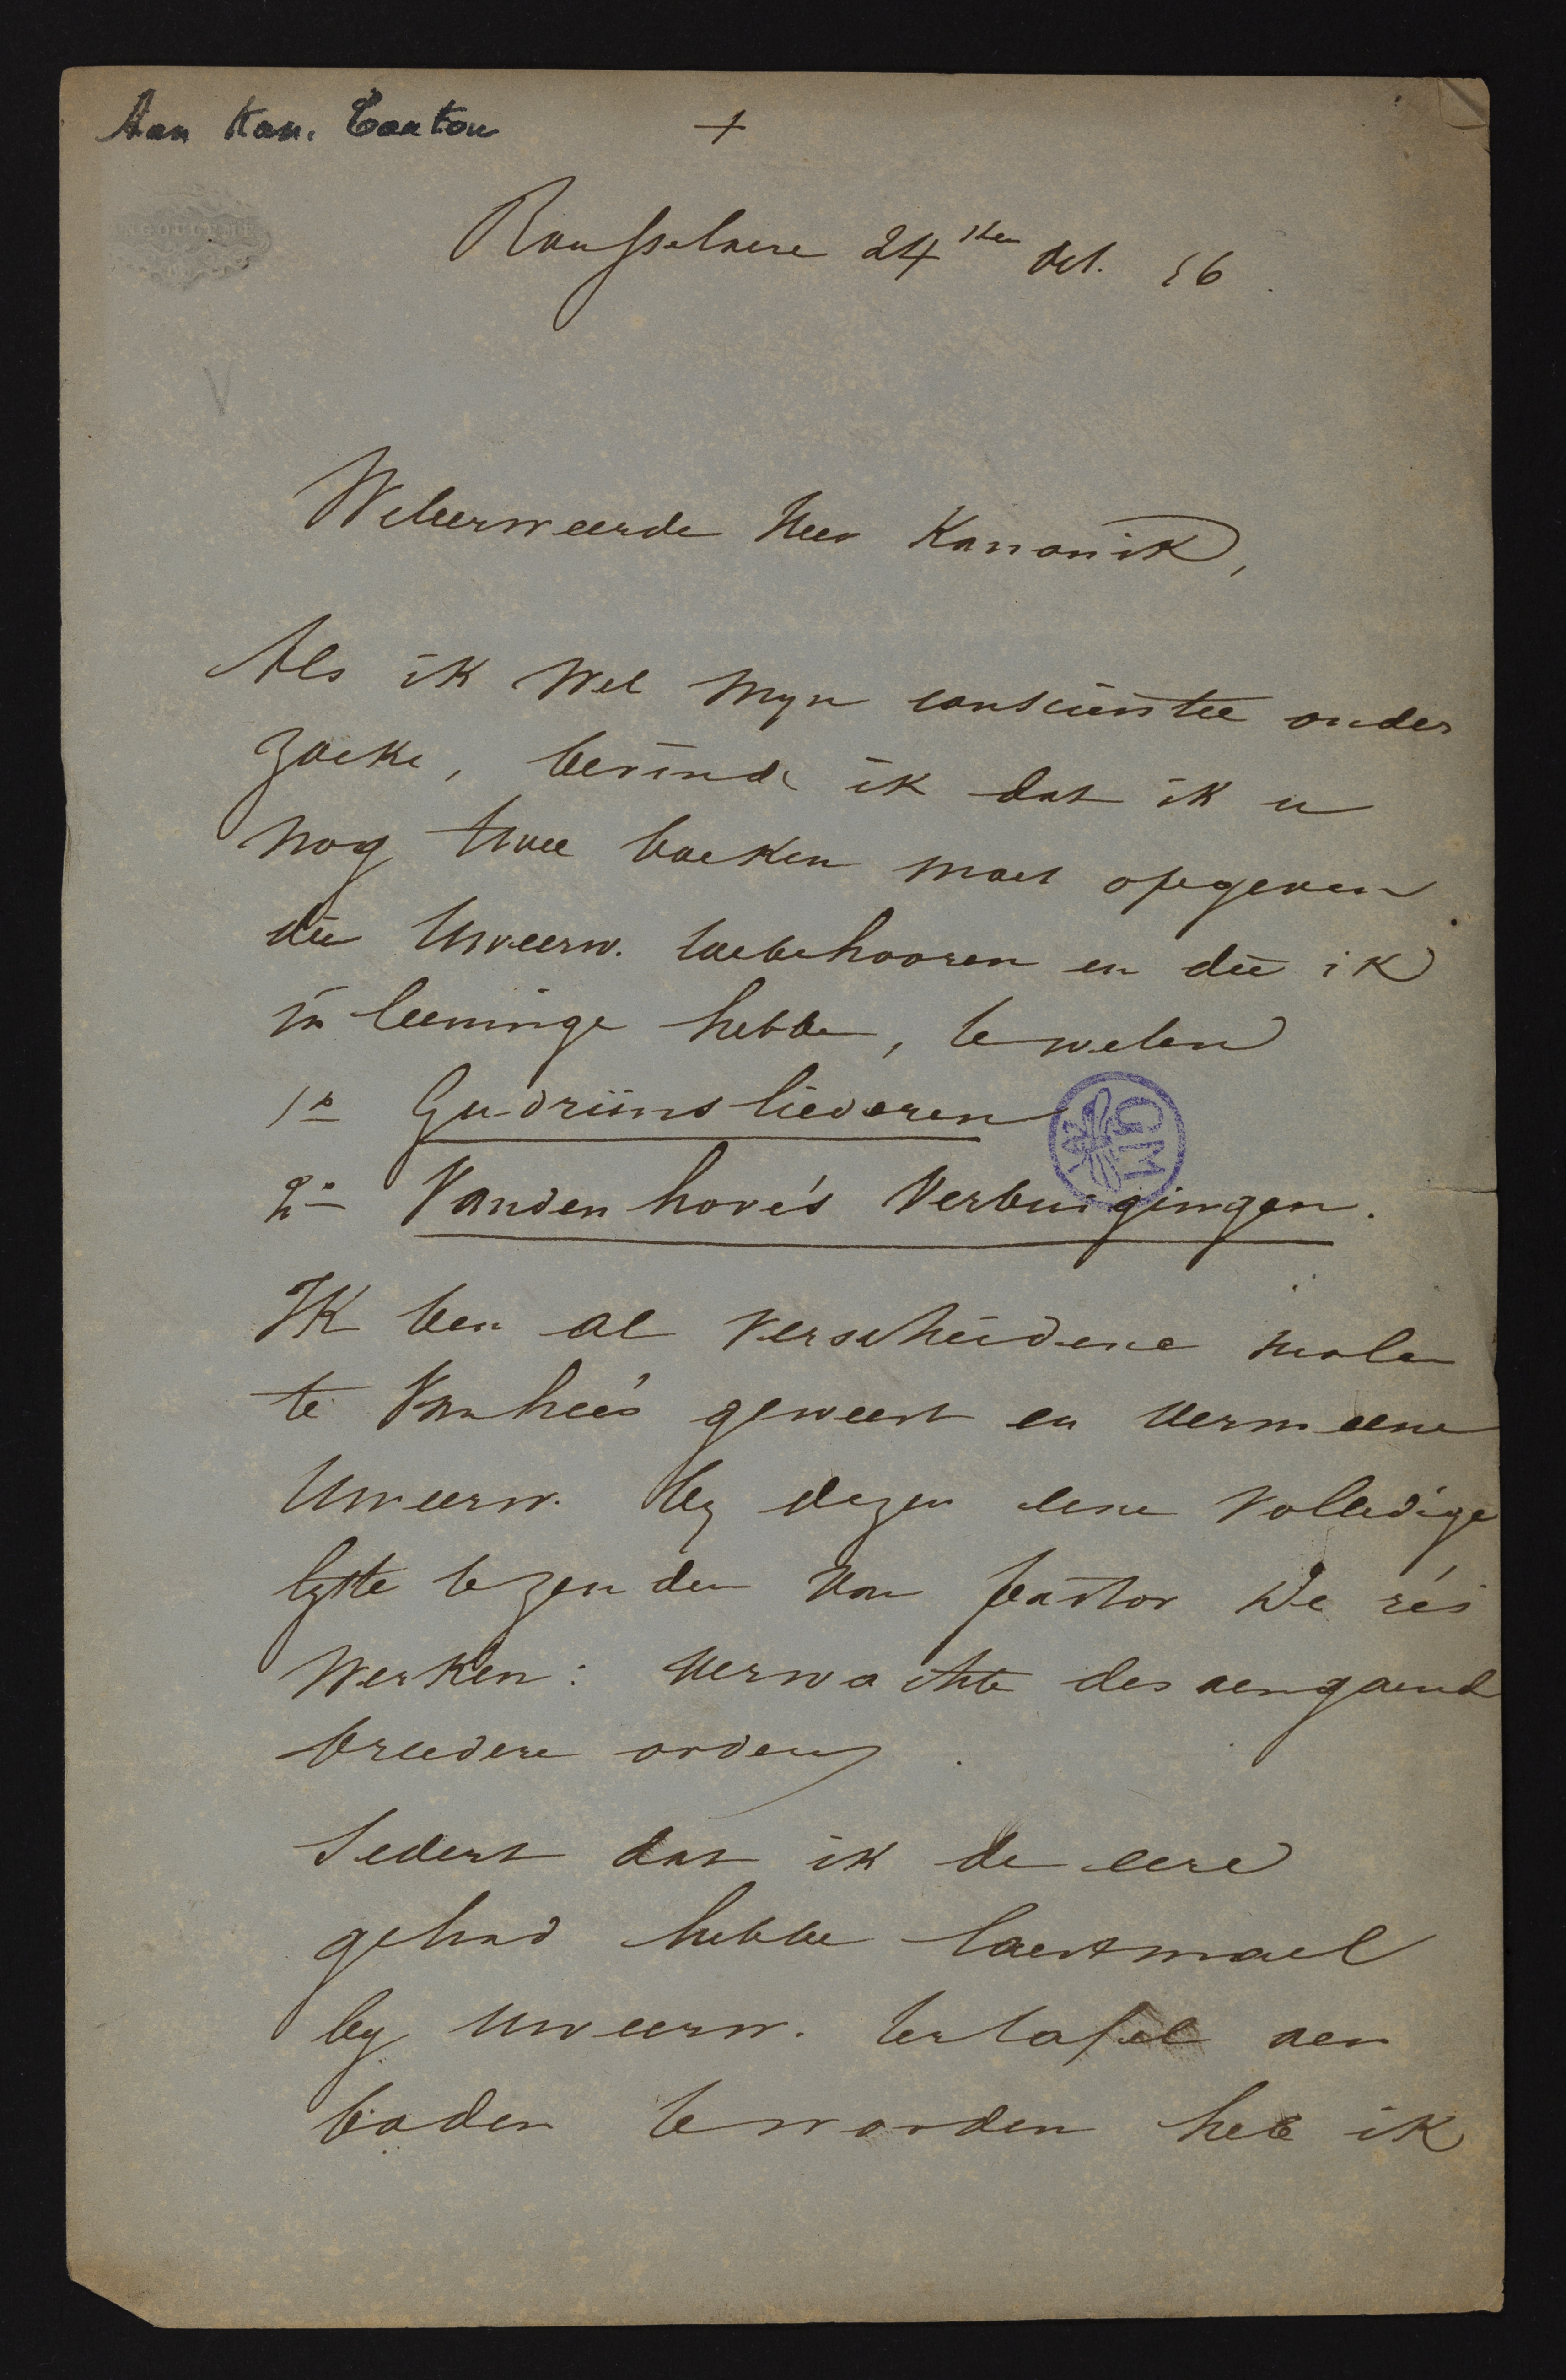 Aan Kan. Carton
+
Rousselaere 24sten Oct. 56.
V
Weleerweerde Heer Kanonik,
Als ik wel myn conscientie onder
zoeke, bevinde ik dat ik u
nog twee boeken moet opgeven
die Uweerw. toebehooren en die ik
in leeninge hebbe, te weten
1° Gudrünsliederen
2° Vandenhove's Verbuigingen.
Ik ben al verscheidene malen
te Vanhee's geweest en vermeene
Uweerw. by dezen eene volledige
lyste te zenden van pastor De rés
werken: verwachte desaengaende
breedere orders.
Sedert dat ik de eere
gehad hebbe laestmael
by Uweerw. ter tafel aen
boden te worden heb ik